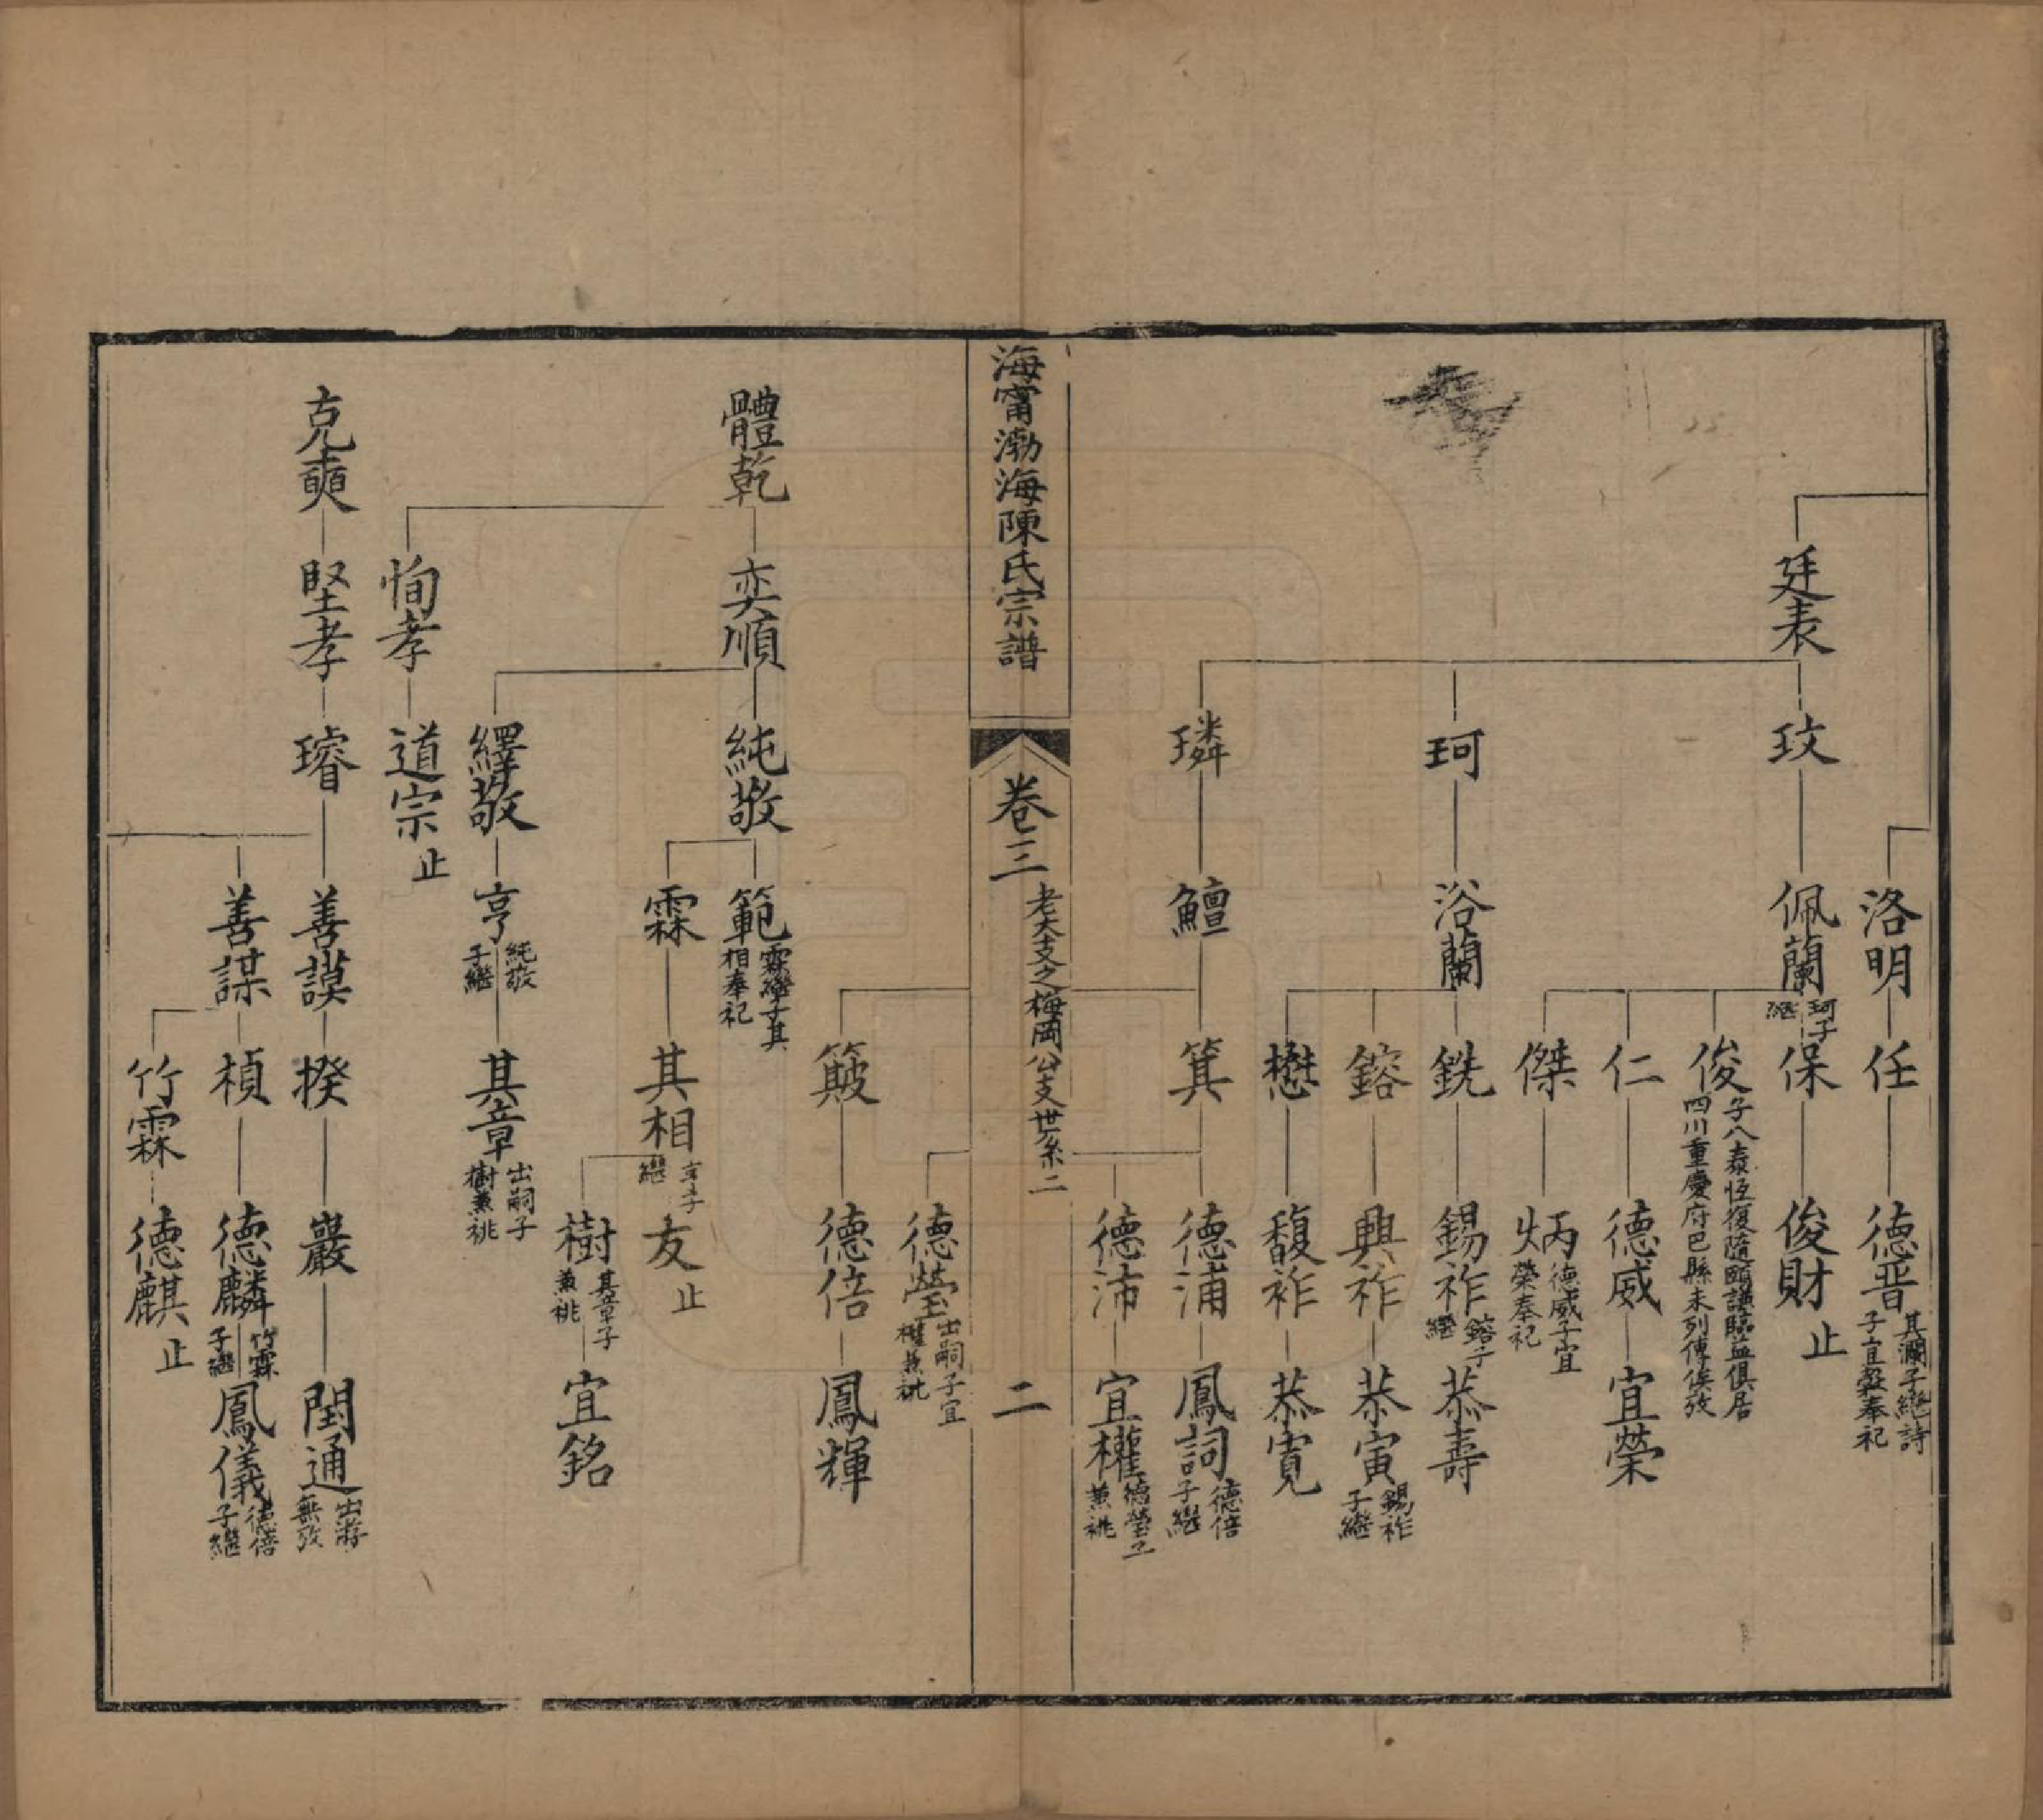 洛明 任 德晋 其瀾子繞詩子宜穀奉祀
廷表 玟 佩蘭 珂子繼 保 俊財 止
俊 子八泰恆復隨頤謙臨益俱居四川重慶府巴縣未列傳俟攷
仁 德威 宜榮
傑 炳 德威子宜榮奉祀
珂 浴蘭 銑 錫祚 鎔子繼 恭壽
鎔 興祚 恭寅 錫祚子繼
懋 馥祚 恭寬
璘 鱣 箕 德浦 鳳詞 德倍子繼
德沛 宜權 德瑩子兼祧
海甯渤海陳氏宗譜
卷三 老大支之梅岡公支世系二
二
德瑩 出嗣子宜權兼祧
簸 德倍 鳳輝
體乾 奕順 純敬 範 霖繼子其相奉祀
霖 其相 亨子繼 友 止
樹 其章子兼祧 宜銘
繹敬 亨 純敬子繼 其章 出嗣子樹兼祧
恂孝 道宗 止
克奭 堅孝 璿 善謨 揆 巖 閏通 出游無攷
善謀 楨 德麟 竹霖子繼 鳳儀 德倍子繼
竹霖 德麒 止